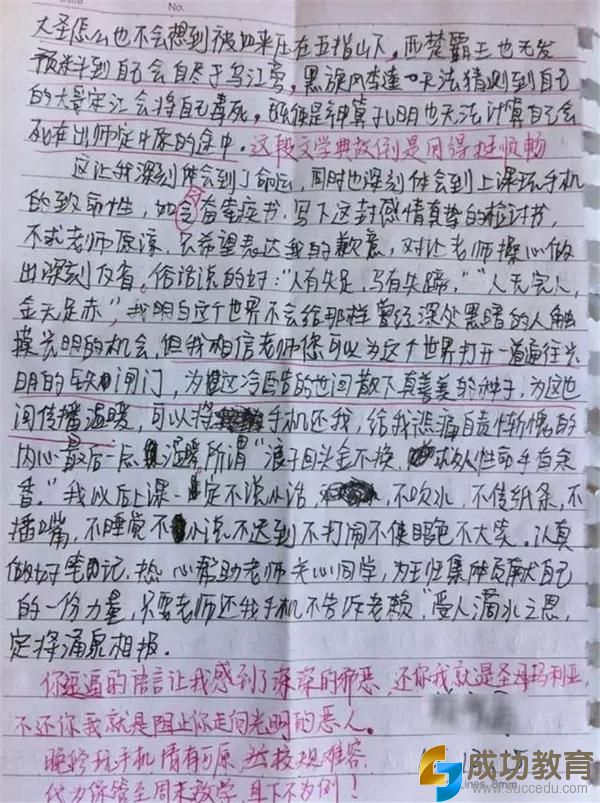 No.
大圣怎么也不会想到被如来压在五指山下，西楚霸王也无发
预料到自己会自尽于乌江旁，黑旋风李逵也无法猜测到自己
的大哥宋江会将自己毒死，既使是神算孔明也无法计算自己会
死在出师定中原的途中。这段文学典故倒是用得挺顺畅
这让我深刻体会到了命运，同时也深刻体会到上课玩手机
的致命性，如今奋笔疾书，写下这封感情真挚的检讨书，
不求老师原谅，只希望表达我的歉意，对让老师操心做
出深刻反省，俗话说的好："人有失足，马有失蹄，""人无完人，
金无足赤，"我明白这个世界不会给那样曾经深处黑暗的人触
摸光明的机会，但我相信老师您可以为这个世界打开一道通往光
明的铁闸门，为这冷酷的世间散下真善美的种子，为这世
间传播温暖，可以将手机还我，给我悲痛自责惭愧的
内心最后一点温暖，所谓"浪子回头金不换，救人性命手有余
香。"我以后上课一定不说小话，不吹水，不传纸条，不
插嘴，不睡觉不小说不迟到不打闹不使眼色不大笑。认真
做好笔记，热心帮助老师关心同学，为班集体贡献自己
的一份力量，只要老师还我手机不告诉老赖，"受人滴水之恩，
定将涌泉相报。
你逼的语言让我感到了深深的邪恶，还你我就是圣母玛利亚，
不还你我就是阻止你走向光明的恶人。
晚修玩手机情有可原 然校规难容
代为保管至周末放学 且下不为例！
成功教育
www.succedu.com
Lines, 8mm